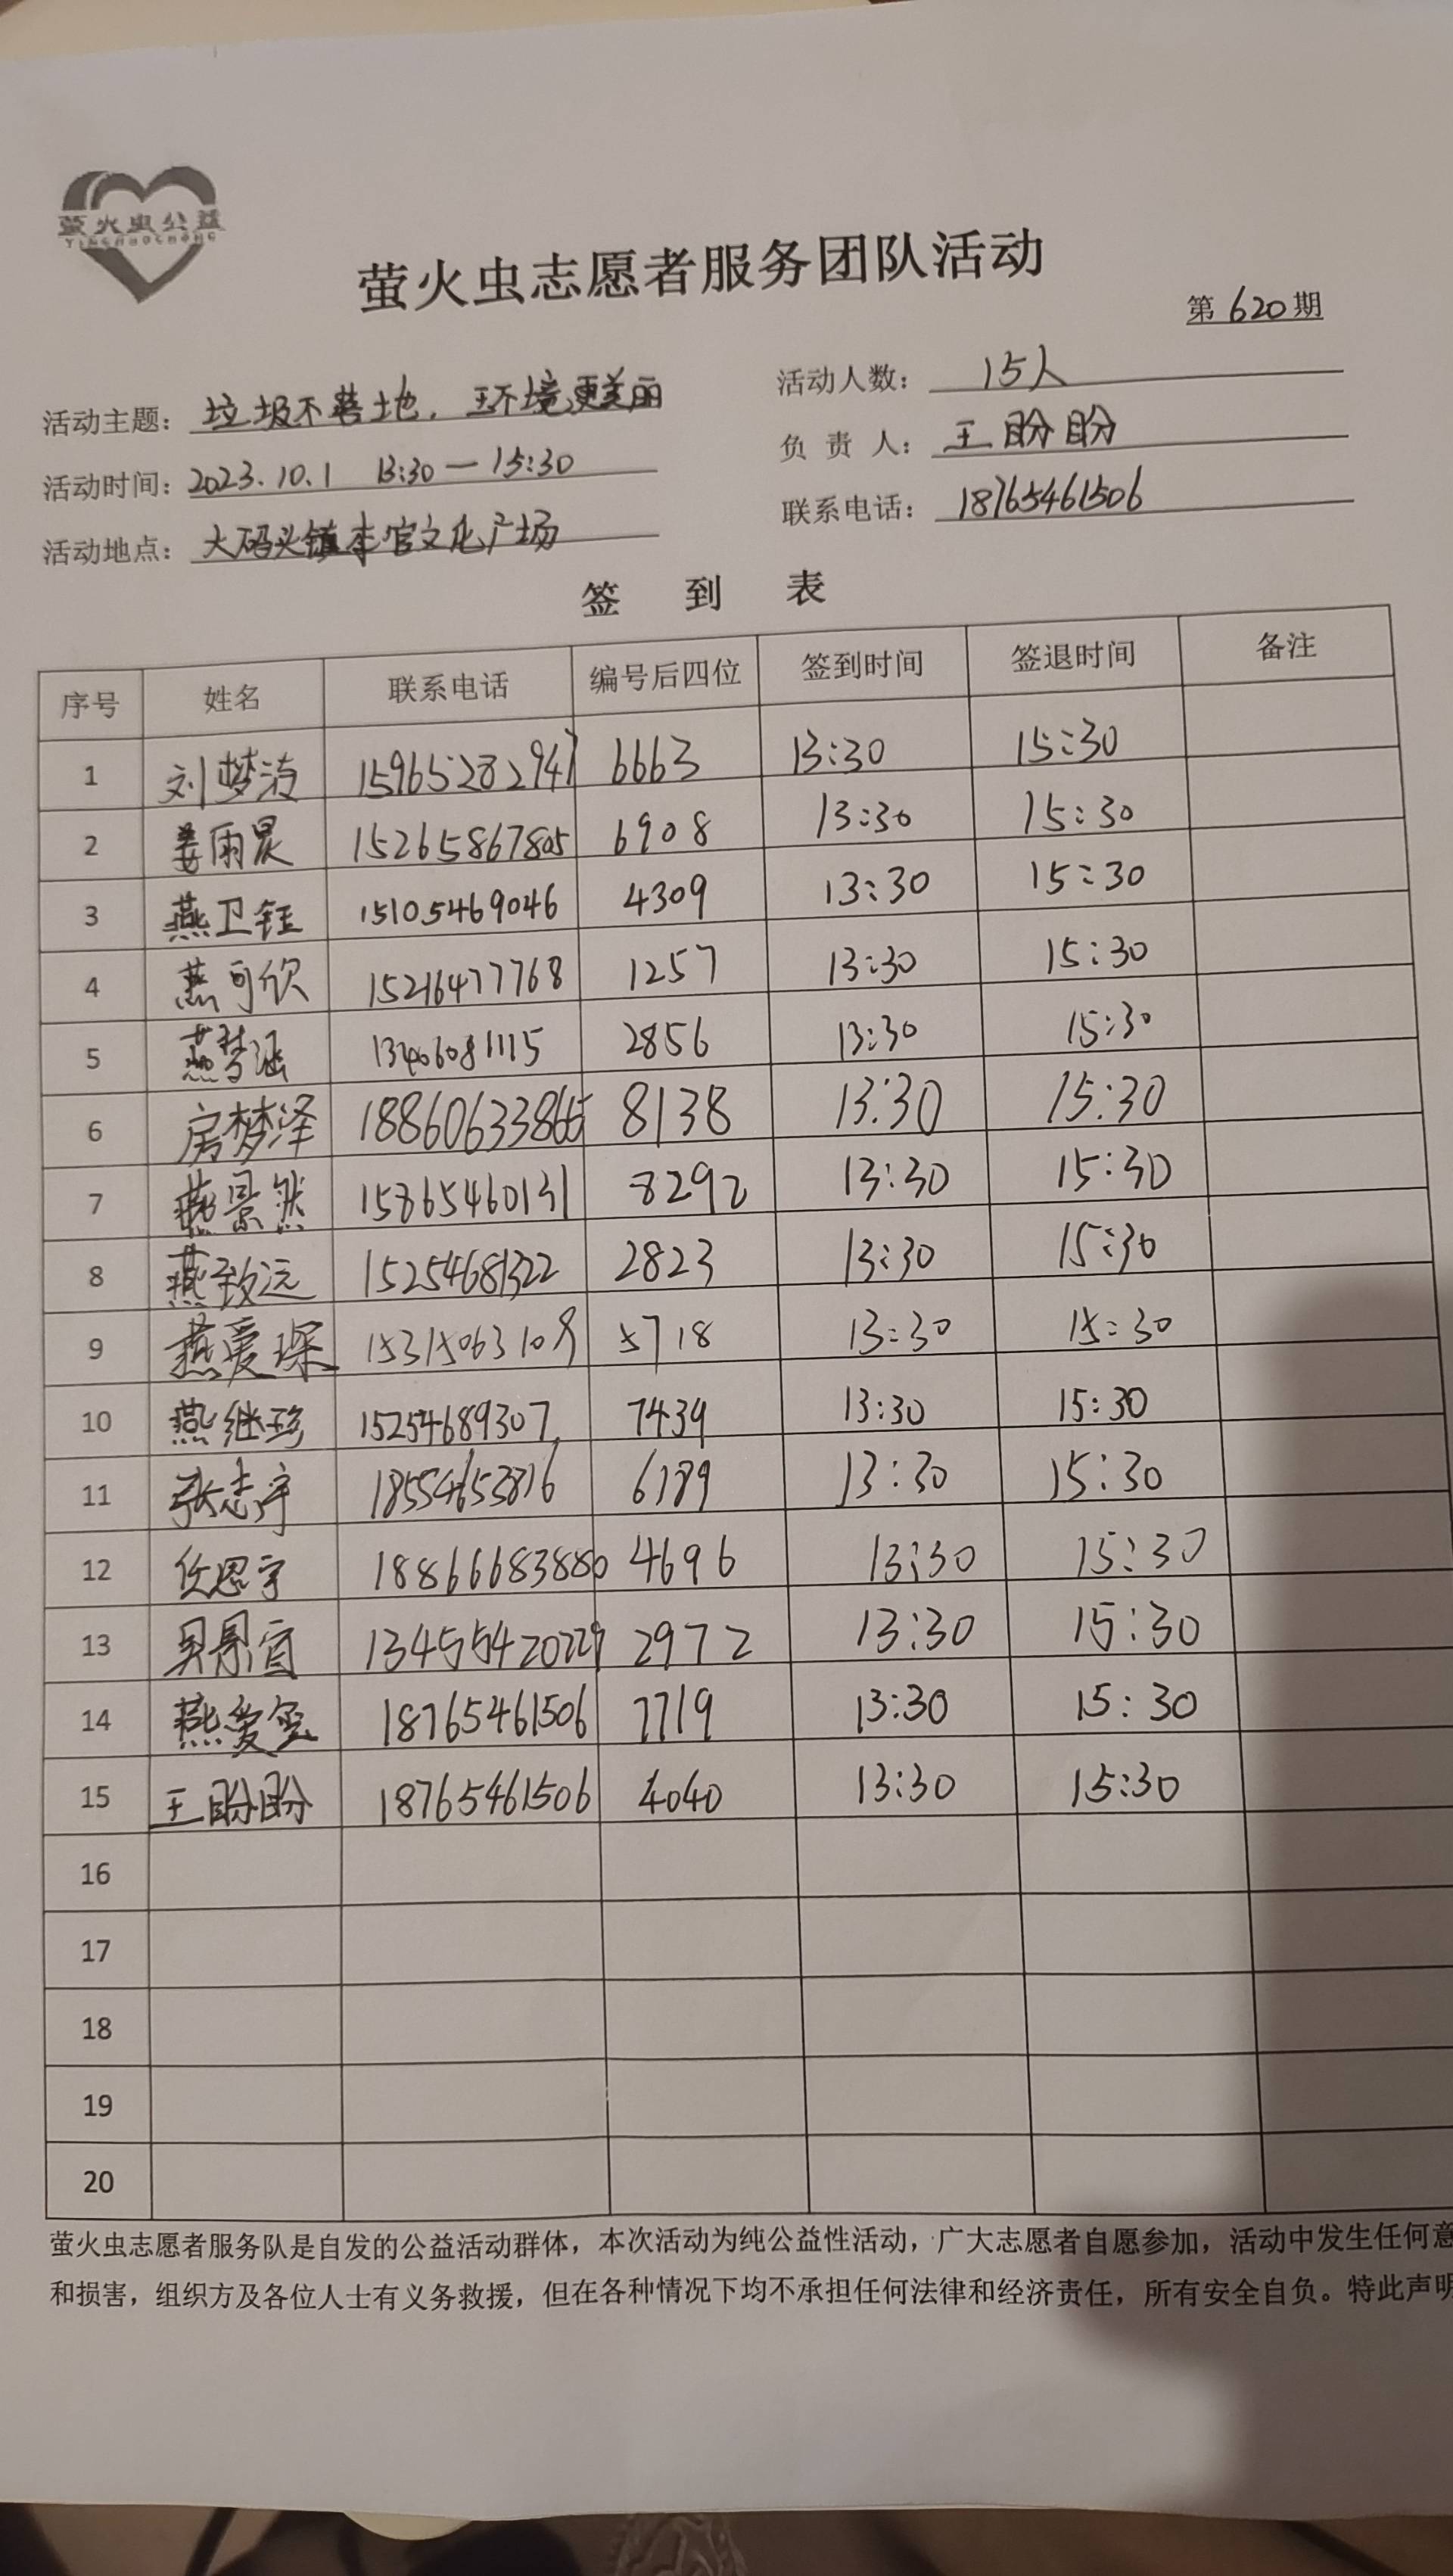 萤火虫公益
YINGHUOCHONG
萤火虫志愿者服务团队活动
第620期
活动主题：垃圾不落地，环境更美丽 活动人数：15人
活动时间：2023.10.1 13:30—15:30 负责人：王盼盼
活动地点：大码头镇李官文化广场 联系电话：18765461506
签到表
序号 姓名 联系电话 编号后四位 签到时间 签退时间 备注
1 刘梦涛 15965282947 6663 13:30 15:30
2 姜雨晨 15265867805 6908 13:30 15:30
3 燕卫钰 15105469046 4309 13:30 15:30
4 燕可欣 15216477768 1257 13:30 15:30
5 燕梦涵 13406081115 2856 13:30 15:30
6 房梦泽 18860633865 8138 13:30 15:30
7 燕景然 15865460131 8292 13:30 15:30
8 燕致远 15254681322 2823 13:30 15:30
9 燕爱琛 15315063109 5718 13:30 15:30
10 燕继珍 15254689307 7439 13:30 15:30
11 张志宇 18554653816 6189 13:30 15:30
12 任恩宇 18866683880 4696 13:30 15:30
13 景宜 13455420229 2972 13:30 15:30
14 燕爱 18765461506 7719 13:30 15:30
15 王盼盼 18765461506 4040 13:30 15:30
16
17
18
19
20
萤火虫志愿者服务队是自发的公益活动群体，本次活动为纯公益性活动，广大志愿者自愿参加，活动中发生任何意
和损害，组织方及各位人士有义务救援，但在各种情况下均不承担任何法律和经济责任，所有安全自负。特此声明